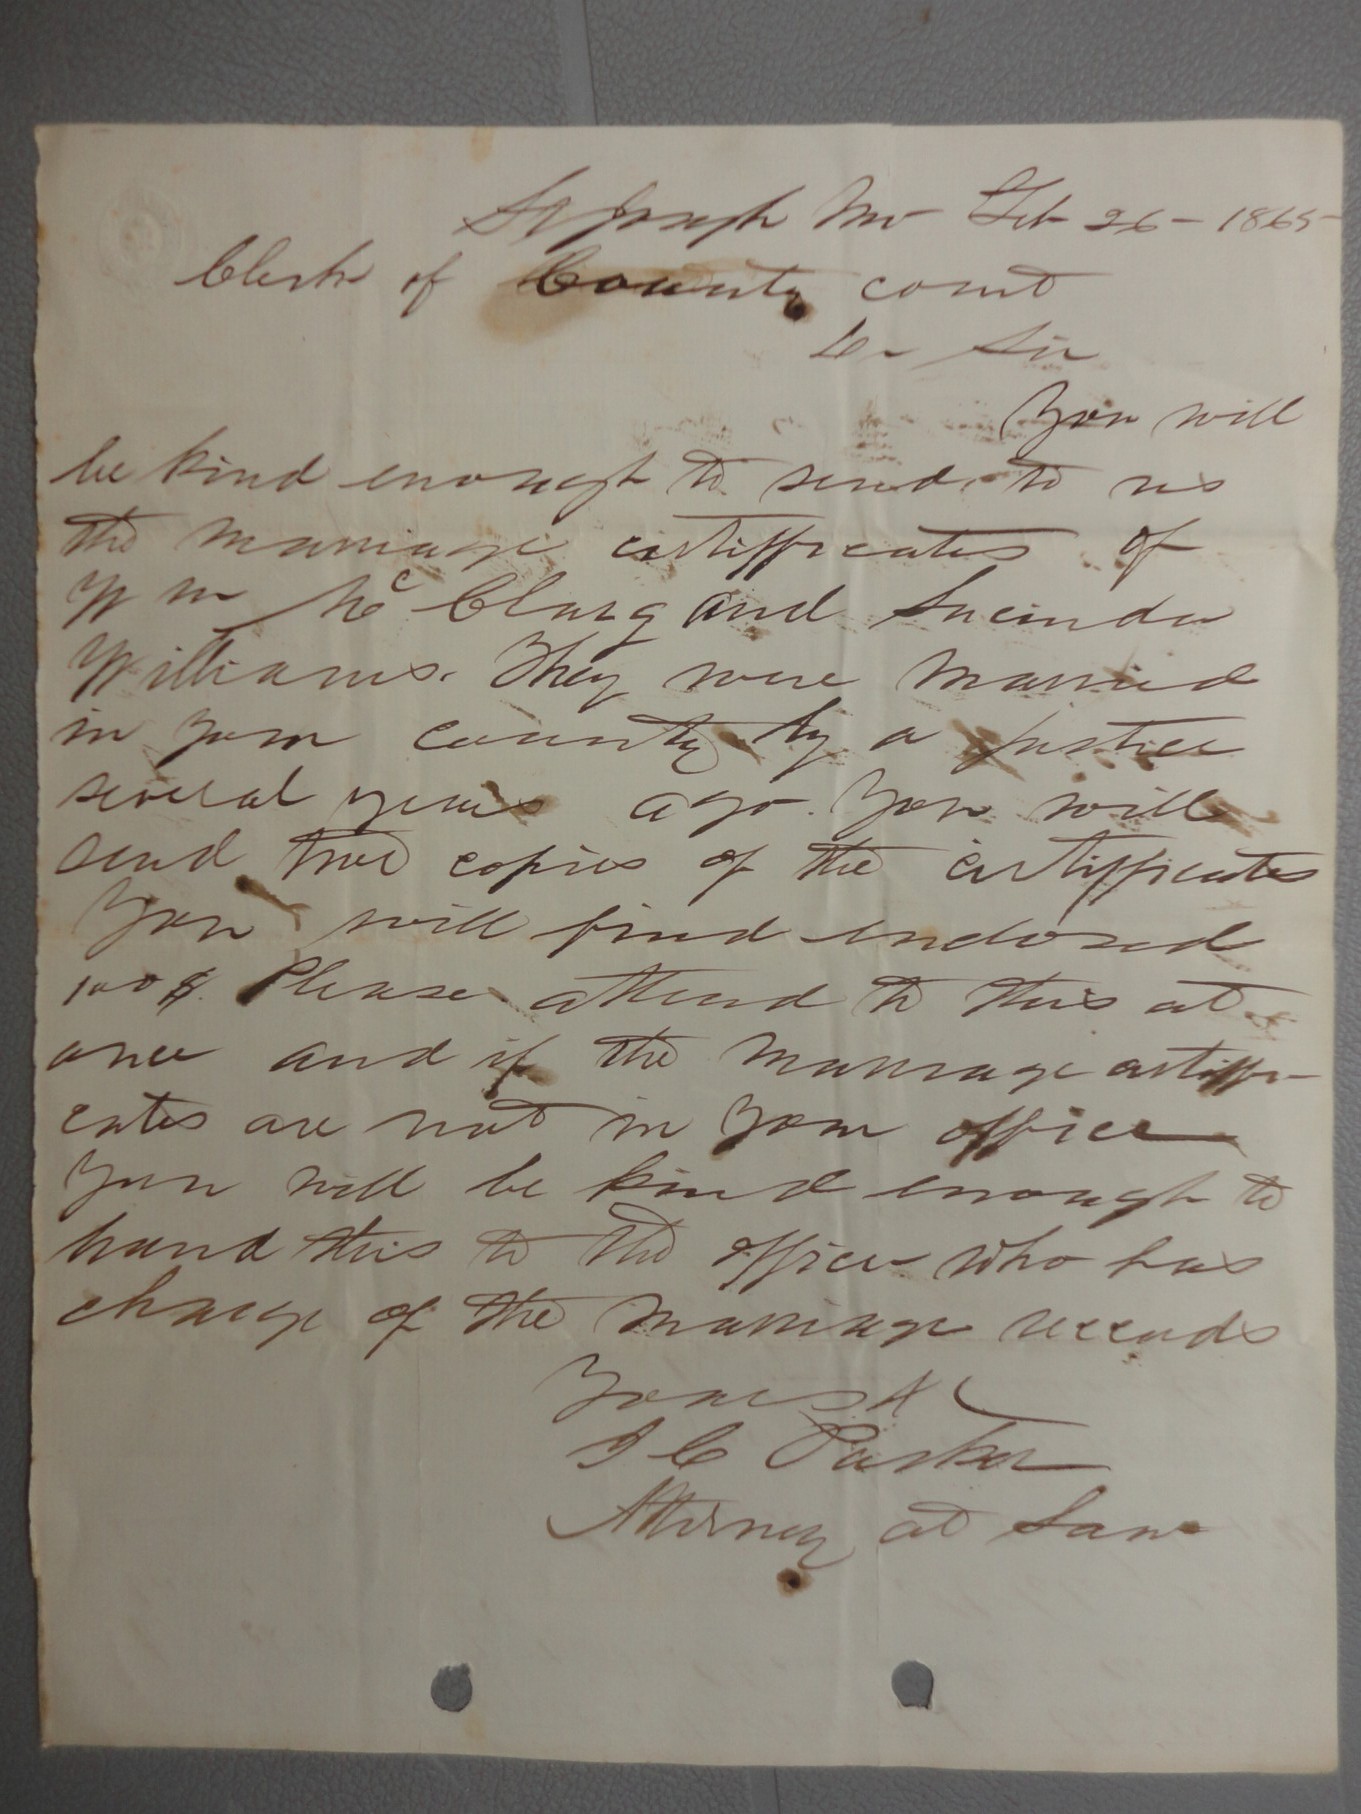 St Joseph Mo Feb 26 - 1865
Clerk of County court
Dr Sir
You will
be kind enough to send to us
the marriage certifficates of
Wm McClurg and Lucinda
Williams. They were married
in your county by a Justice
several years ago. You will
send true copies of the certifficates
You will find enclosed
100 $. Please attend to this at
once and if the marriage certiffi-
cates are not in your office
you will be kind enough to
hand this to the officer who has
charge of the marriage records
Yours &c
I C Parker
Attorney at Law